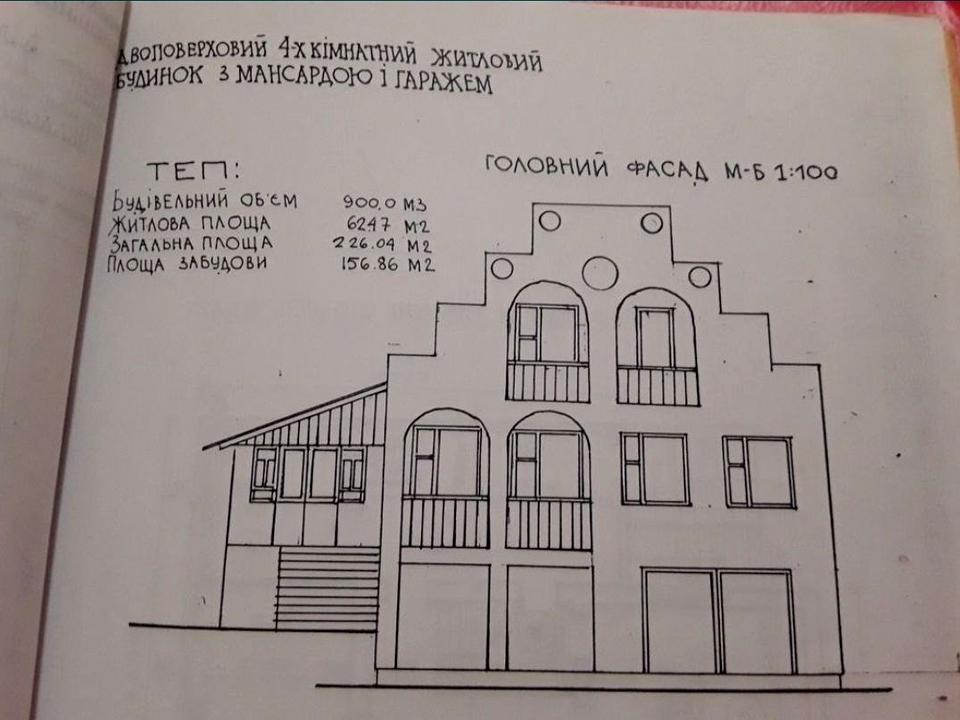 ДВОПОВЕРХОВИЙ 4-Х КІМНАТНИЙ ЖИТЛОВИЙ
БУДИНОК З МАНСАРДОЮ І ГАРАЖЕМ
ТЕП:
ГОЛОВНИЙ ФАСАД М-Б 1:100
БУДІВЕЛЬНИЙ ОБ'ЄМ 900,0 М3
ЖИТЛОВА ПЛОЩА 6247 М2
ЗАГАЛЬНА ПЛОЩА 226.04 М2
ПЛОЩА ЗАБУДОВИ 156.86 М2